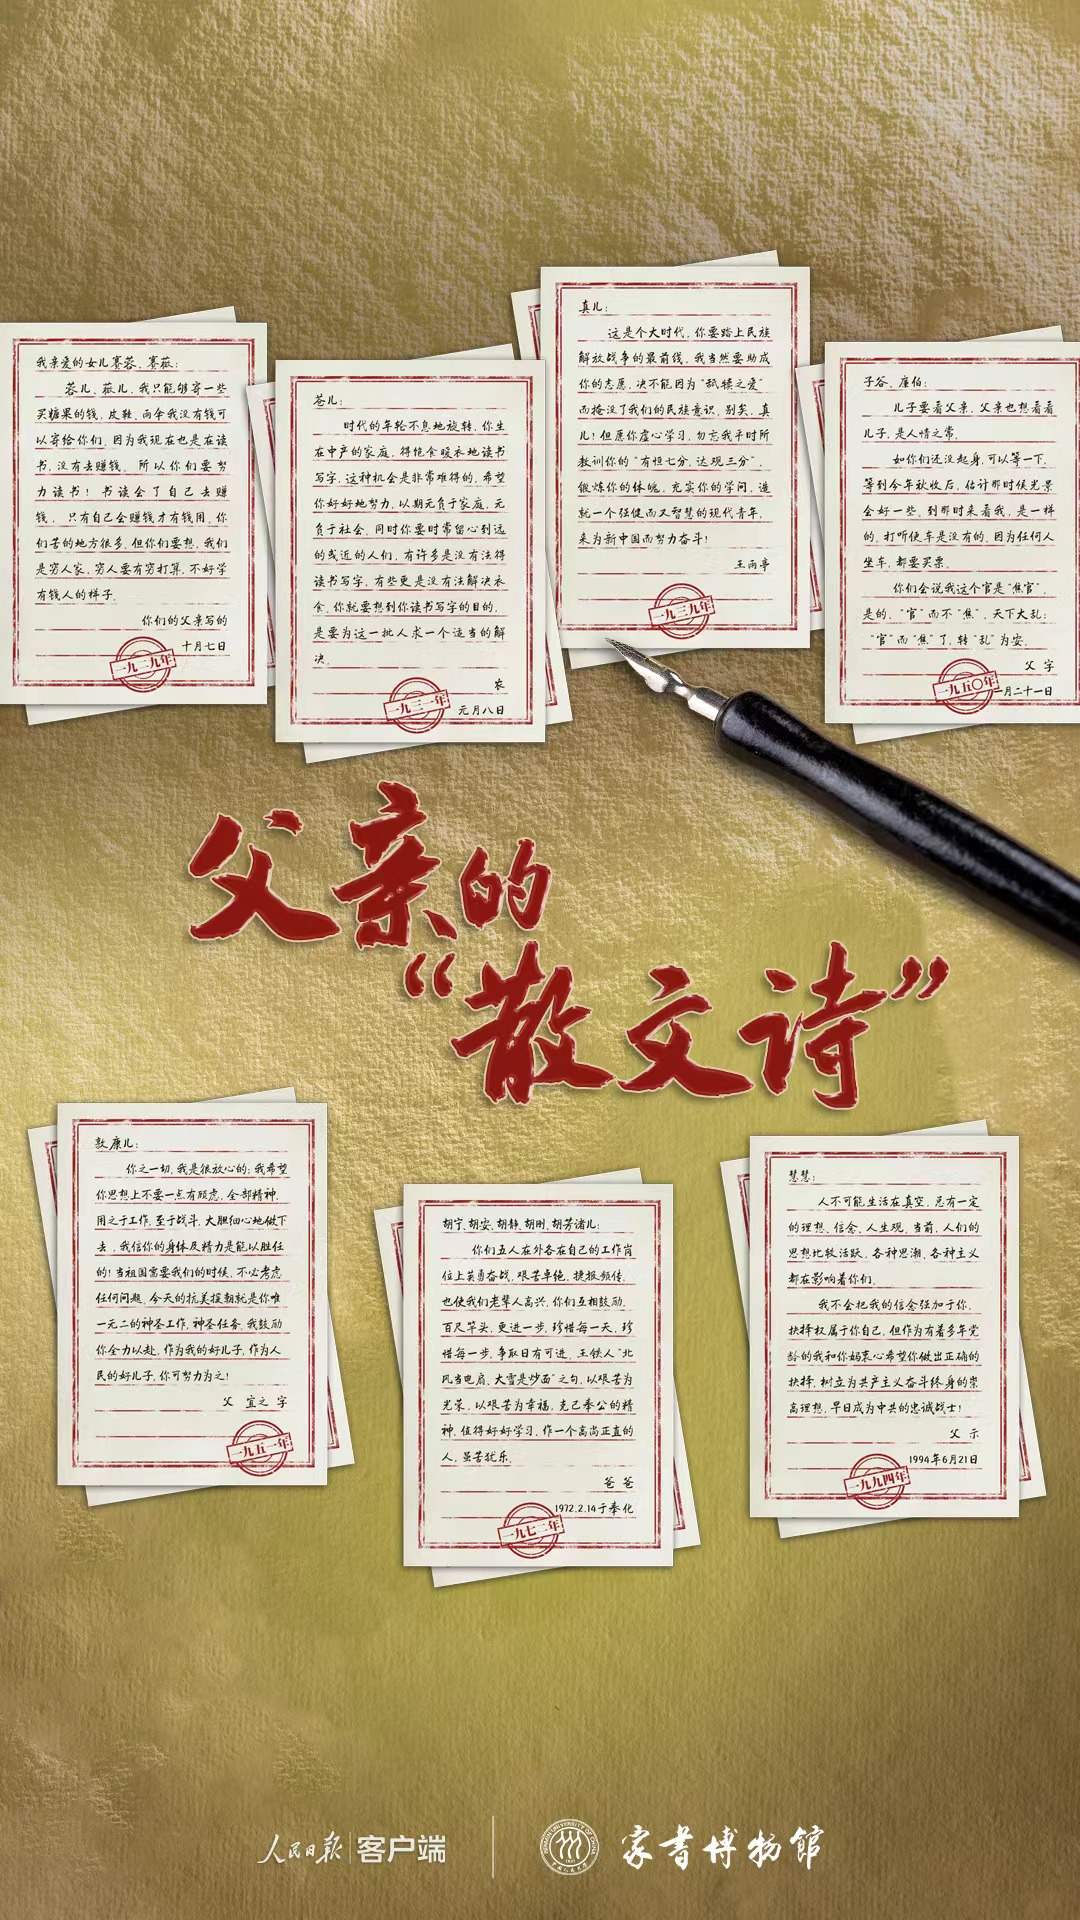 我亲爱的女儿赛蓉、赛薇：
蓉儿、薇儿，我只能够寄一些
买糖果的钱，皮鞋、雨伞我没有钱可
以寄给你们，因为我现在也是在读
书，没有去赚钱。所以你们要努
力读书！书读会了自己去赚
钱，只有自己会赚钱才有钱用。你
们苦的地方很多，但你们要想，我们
是穷人家，穷人要有穷打算，不好学
有钱人的样子。
你们的父亲写的
十月七日
一九二九年
苍儿：
时代的年轮不息地旋转，你生
在中产的家庭，得饱食暖衣地读书
写字，这种机会是非常难得的，希望
你好好地努力，以期无负于家庭，无
负于社会，同时你要时常留心到远
的或近的人们，有许多是没有法得
读书写字，有些更是没有法解决衣
食，你就要想到你读书写字的目的，
是要为这一批人求一个适当的解
决。
农
元月八日
一九三一年
真儿：
这是个大时代，你要踏上民族
解放战争的最前线，我当然要助成
你的志愿，决不能因为“舐犊之爱”
而掩没了我们的民族意识。别矣，真
儿！但愿你虚心学习，勿忘我平时所
教训你的“有恒七分，达观三分”，
锻炼你的体魄，充实你的学问，造
就一个强健而又智慧的现代青年，
来为新中国而努力奋斗！
王雨亭
一九三九年
子谷、廑伯：
儿子要看父亲，父亲也想看看
儿子，是人情之常。
如你们还没起身，可以等一下，
等到今年秋收后，估计那时候光景
会好一些，到那时来看我，是一样
的。打听便车是没有的，因为任何人
坐车，都要买票。
你们会说我这个官是“焦官”，
是的，“官”而不“焦”，天下大乱；
“官”而“焦”了，转“乱”为安。
父 字
二月二十一日
一九五〇年
父亲的
“散文诗”
敦康儿：
你之一切，我是很放心的；我希望
你思想上不要一点有顾虑，全部精神，
用之于工作，至于战斗，大胆细心地做下
去，我信你的身体及精力是能以胜任
的！当祖国需要我们的时候，不必考虑
任何问题，今天的抗美援朝就是你唯
一无二的神圣工作，神圣任务，我鼓励
你全力以赴，作为我的好儿子，作为人
民的好儿子，你可努力为之！
父 宜之 字
一九五一年
胡宁、胡安、胡静、胡刚、胡芳诸儿：
你们五人在外各在自己的工作岗
位上英勇奋战，艰苦卓绝，捷报频传，
也使我们老辈人高兴，你们互相鼓励，
百尺竿头，更进一步，珍惜每一天，珍
惜每一步，争取日有可进，王铁人“北
风当电扇，大雪是炒面”之句，以艰苦为
光荣，以艰苦为幸福，克己奉公的精
神，值得好好学习，作一个高尚正直的
人，虽苦犹乐。
爸爸
1972.2.14于奉化
一九七二年
慧慧：
人不可能生活在真空，总有一定
的理想、信念、人生观。当前，人们的
思想比较活跃，各种思潮、各种主义
都在影响着你们。
我不会把我的信念强加于你，
抉择权属于你自己，但作为有着多年党
龄的我和你妈衷心希望你做出正确的
抉择，树立为共产主义奋斗终身的崇
高理想，早日成为中共的忠诚战士！
父 示
1994年6月21日
一九九四年
人民日报 客户端
家书博物馆